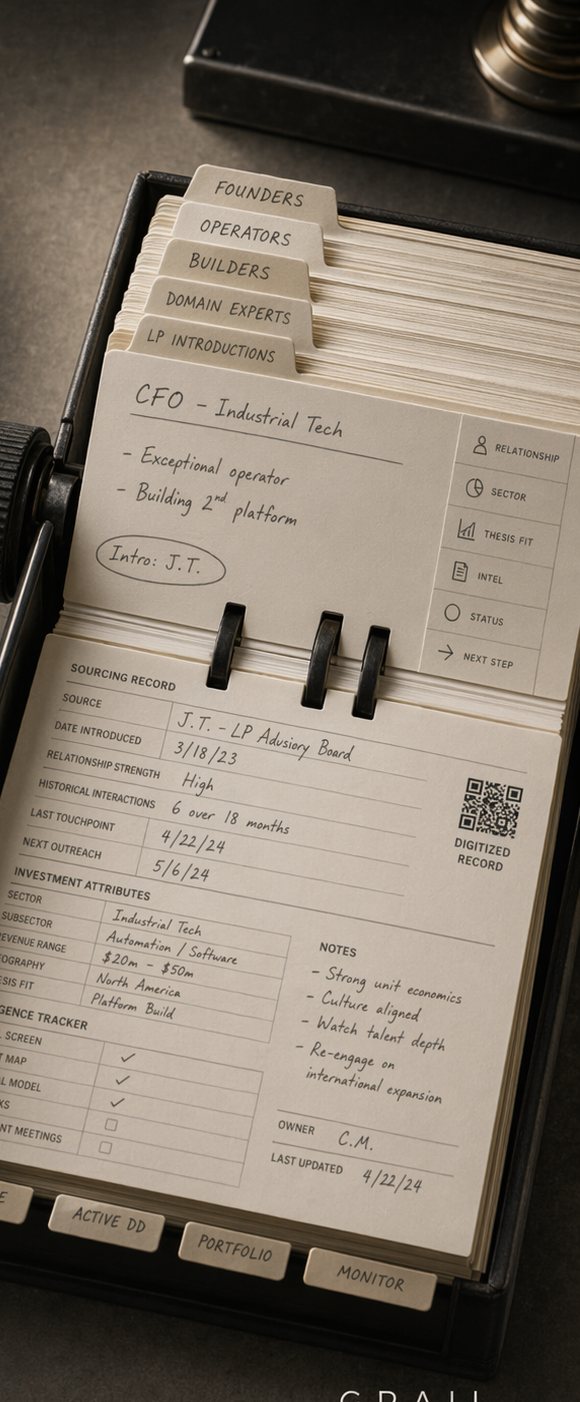 FOUNDERS
OPERATORS
BUILDERS
DOMAIN EXPERTS
LP INTRODUCTIONS
CFO – Industrial Tech
– Exceptional operator
– Building 2nd platform
Intro: J.T.
RELATIONSHIP
SECTOR
THESIS FIT
INTEL
STATUS
NEXT STEP
SOURCING RECORD
SOURCE J.T. – LP Adusiory Board
DATE INTRODUCED 3/18/23
RELATIONSHIP STRENGTH High
HISTORICAL INTERACTIONS 6 over 18 months
LAST TOUCHPOINT 4/22/24
NEXT OUTREACH 5/6/24
DIGITIZED
RECORD
INVESTMENT ATTRIBUTES
SECTOR Industrial Tech
SUBSECTOR Automation / Software
EVENUE RANGE $20m – $50m
OGRAPHY North America
ESIS FIT Platform Build
NOTES
– Strong unit economics
– Culture aligned
– Watch talent depth
– Re-engage on
international expansion
GENCE TRACKER
SCREEN
MAP
MODEL
KS
NT MEETINGS
OWNER C.M.
LAST UPDATED 4/22/24
E
ACTIVE DD
PORTFOLIO
MONITOR